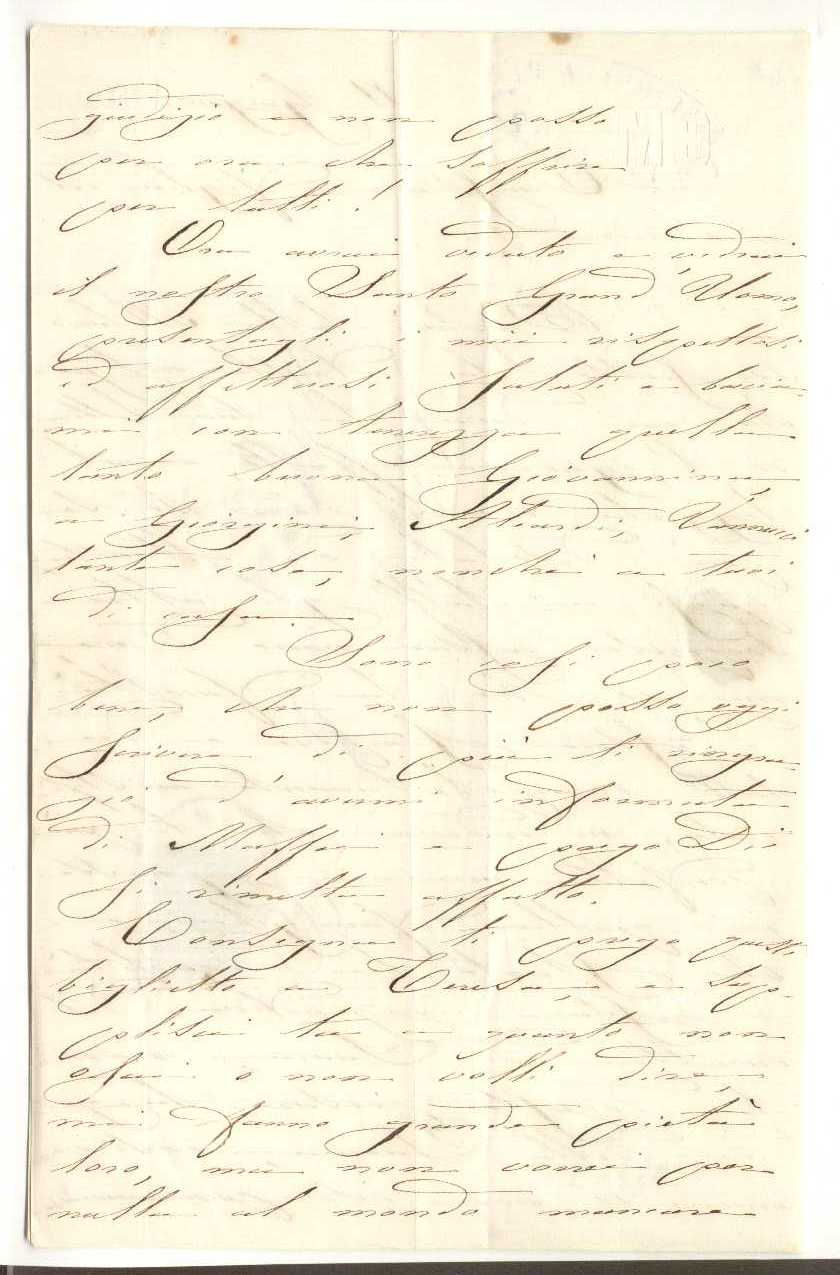 giudizio e non posso
per ora che soffrire
per tutti!
Ora avrai veduto e vedrai
il nostro Santo Grand'Uomo,
presentagli i miei rispettosi
ed affettuosi saluti e bacia-
mi con tenerezza quella
tanto buona Giovannina,
a Giorgini, Aleardi, Vannucci
tante cose, nonché a tuoi
di casa.
Sono così poco
bene, che non posso oggi
scrivere di più ti ringra-
zio d'avermi informata
di Maffei e prego Dio
si rimetta affatto.
Consegna ti prego questi
biglietto a Teresa, e sup-
plisci tu a quanto non
osai o non volli dire,
mi fanno grande pietà
loro, ma non vorrei per
nulla al mondo mancare